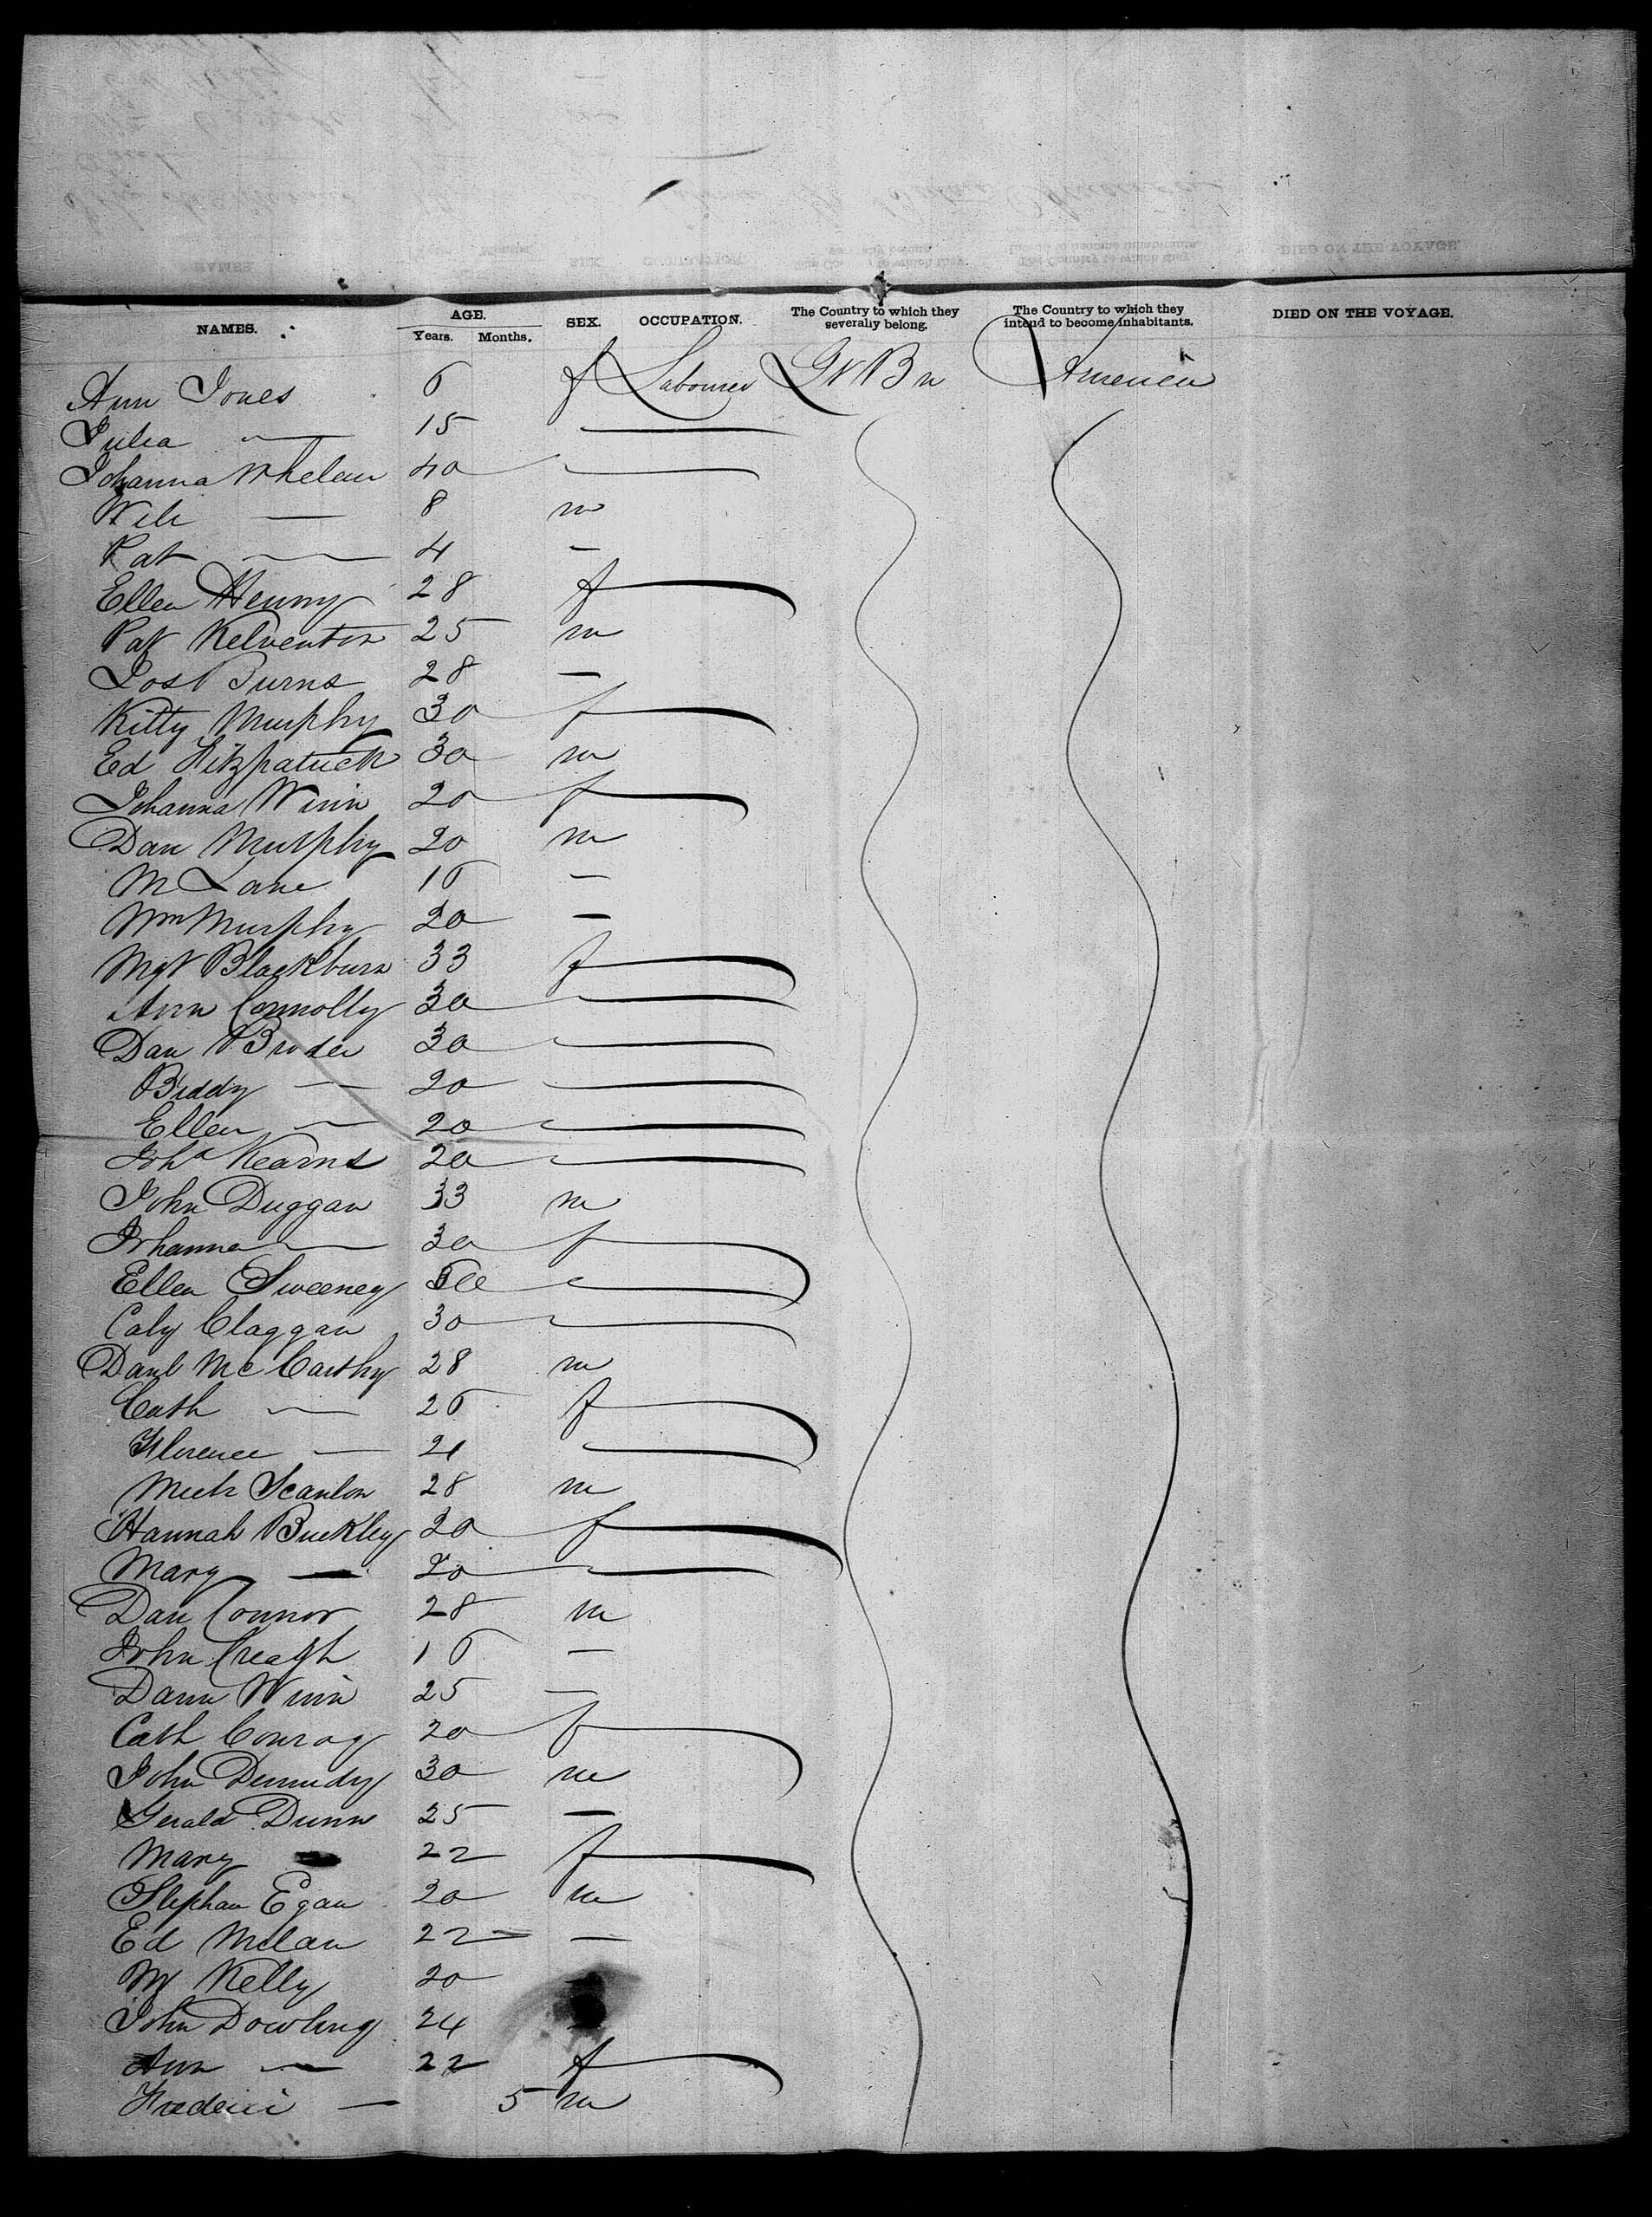 NAMES. AGE. SEX. OCCUPATION. The Country to which they severally belong. The Country to which they intend to become inhabitants. DIED ON THE VOYAGE.
Years. Months.
Ann Jones 6 f Labourer Gt Bn America
Julia — 15 —
Johanna Whelan 40 —
Will — 8 m
Pat — 4 —
Ellen Henny 28 f
Pat Kelventon 25 m
Jos Burns 28 —
Kitty Murphy 30 f
Ed Fitzpatrick 30 m
Johanna Winn 20 f
Dan Murphy 20 m
M Lane 16 —
Wm Murphy 20 —
Mgt Blackburn 33 f
Ann Connolly 30 —
Dan Broder 30 —
Biddy — 20 —
Ellen — 20 —
Joha Kearns 20 —
John Duggan 33 m
Johanna — 30 f
Ellen Sweeney —
Caty Claggan 30 —
Danl McCarthy 28 m
Cath — 26 f
Florence — 21 —
Mich Scanlon 28 m
Hannah Buckley 20 f
Mary — 20 —
Dan Connor 28 m
John Creagh 16 —
Dann Winn 25 —
Cath Conray 20 f
John Dennedy 30 m
Gerald Dunn 25 —
Mary — 22 f
Stephan Egan 20 m
Ed Milan 22 —
M Kelly 20 —
John Dowling 24 —
Ann — 22 f
Frederic — 5 m